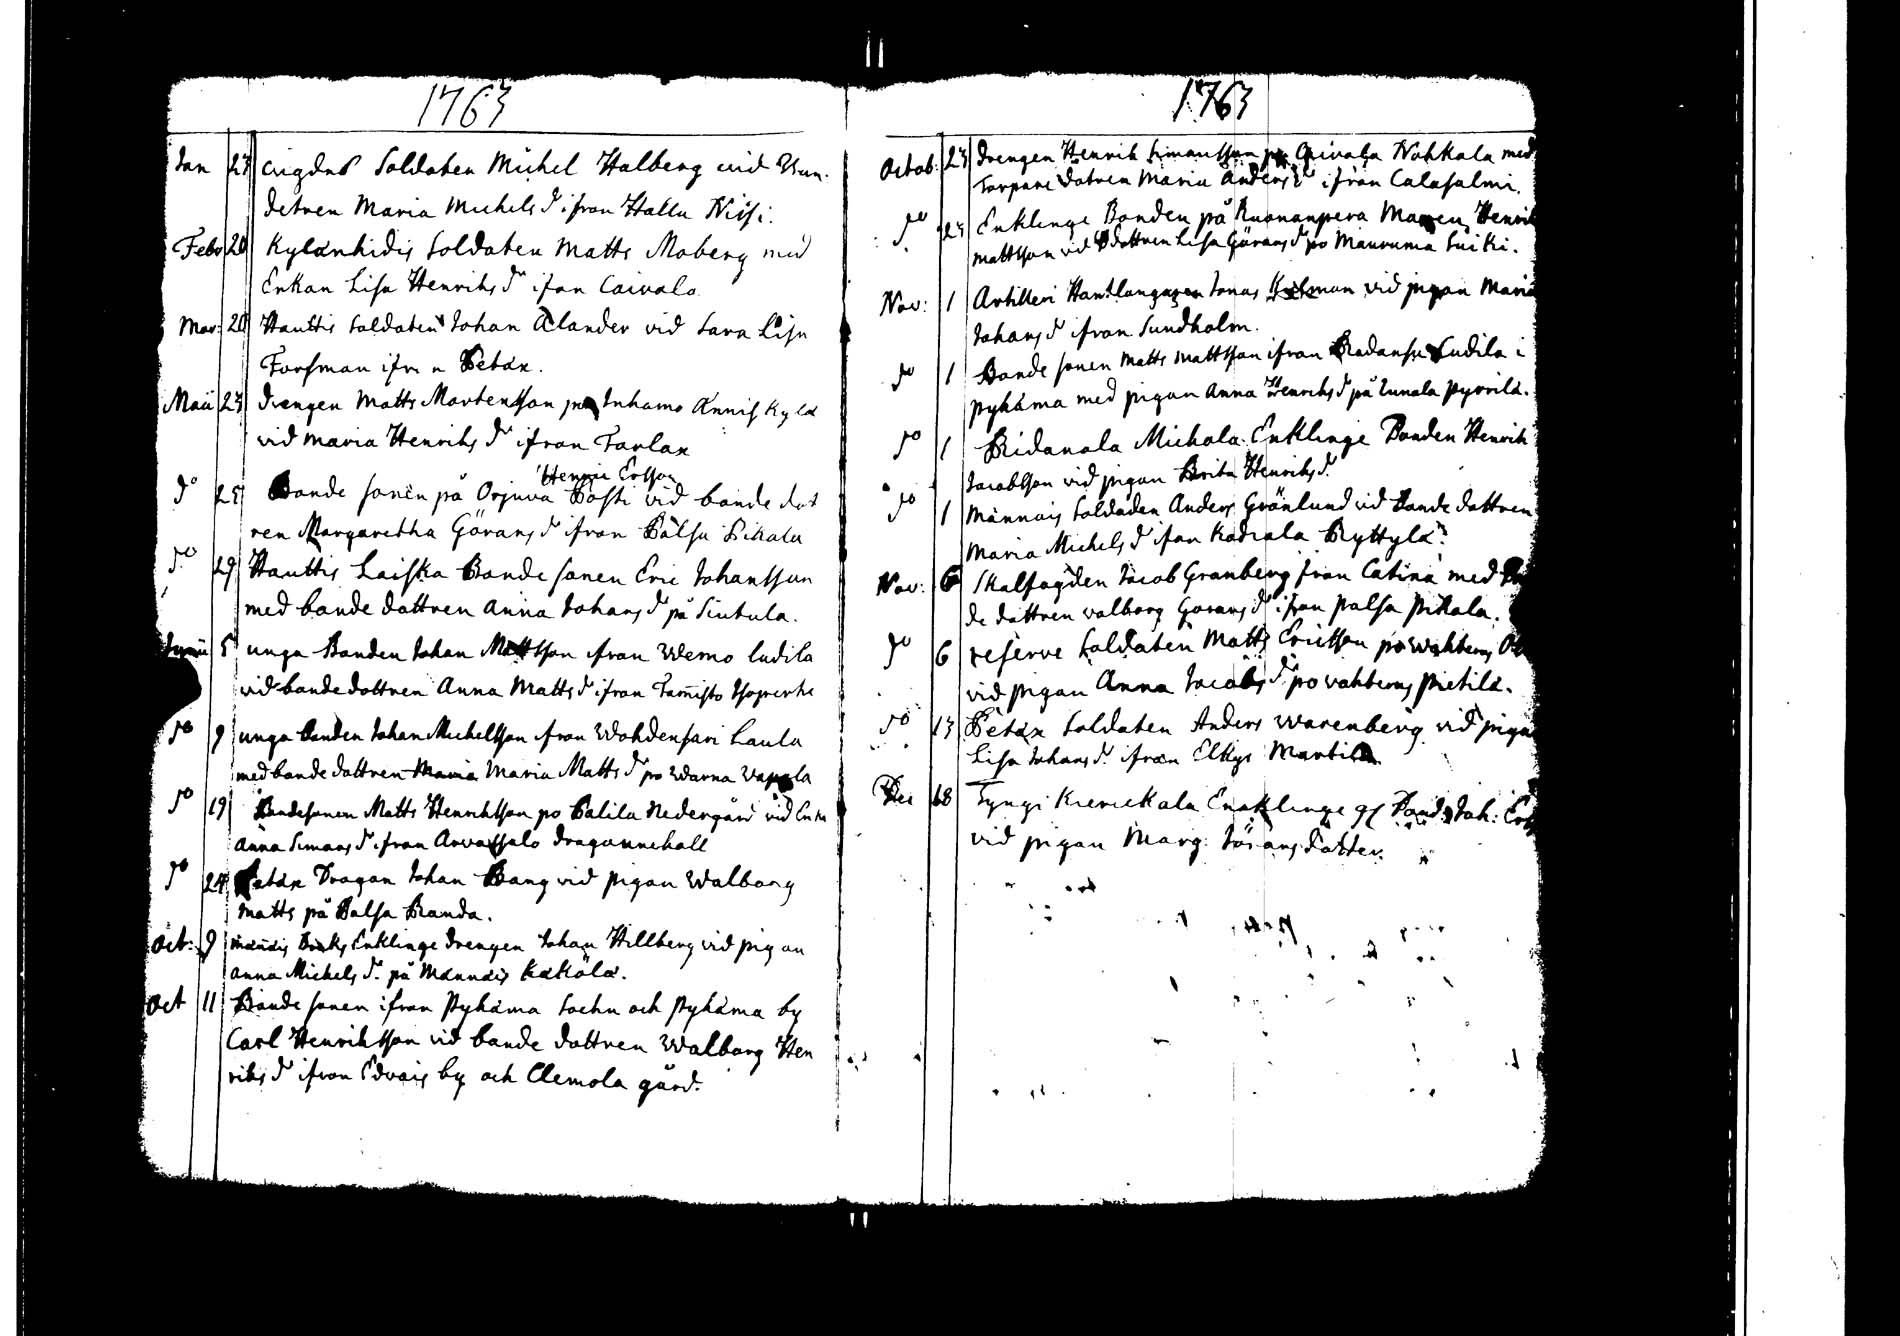 1763
Jan 23 cuigdns Soldaten Michel Halberg wid Brun-
detren Maria Michels dr ifron Hallu Nissi.
Febr 20 Kylänhidis Soldaten Matts Moberg med
Enkan Lisa Henrihs dr ifan Caivalo
Mar: 20 Hauttis Soldaten Johan Ålander vid Sara Lisa
Forsman ifr n Petäx.
Maii 23 Drengen Matts Mortensson Inhamo Annis Kylä
vid Maria Henrihs dr ifron Tarlax
Henric Ersson
do 25 Bonde sonen på Orjuva Posti vid bonde dot
ren Margaretha Görans dr ifron Palsu Pikalu
do 29 Hauttis Laiska Bonde sonen Eric Johansson
med bonde dottren Anna Johans dr på Sintula.
Junii 5 unga Bonden Johan Mattsson ifron Wemo ludila
vid bonde dottren Anna Matts dr ifron Tamisto Isoperhe
do 9 unga bonden Johan Michelsson ifron Wohdensari Laulu
med bonde dottren Maria Maria Matts dr po Warna
do 19 Bondesonen Matts Henrihsson po Palila Nedergård vid Enka
Anna Simons dr ifron Arvassalo dragonnehåll
do 24 Petäx Dragon Johan Bang vid pigan Walborg
Matts på Palsa Randa.
Oct: 9 Männäis Enklinge drengen Johan Hillberg vid pigan
Anna Michels dr på Männäis Kaköla.
Oct 11 Bonde sonen ifron Pyhäma Sochn och Pyhäma by
Carl Henrihsson vid bonde dottren Walborg Hen
rihs dr ifron Edvais by och Clemola gård.
1763
Octob: 23 Drengen Henrih Simonsson Caivola Nohkala med
Torpare dotren Maria Anders dr ifrån Calasalmi.
do 23 Enklinge Bonden på Ruonanpera Henrih
Mattsson vid dottren Lisa Görans dr po Mauruma Suiki.
Nov: 1 Artilleri Hantlangaren Jonas vid pigan Maria
Johans dr ifron Sundholm.
do 1 Bonde sonen Matts Mattsson ifron ludila i
Pyhäma med pigan Anna Henrihs dr på Lunala Pyrrilä.
do 1 Ridanala Michola Enklinge Bonden Henrih
Jacobsson vid pigan Brita Henrihs dr
do 1 Männäis Soldaden Anders Grönlund vid Bonde dottren
Maria Michels dr ifan Kadiala Ryttylä
Nov: 6 Skalfogden Jacob Granberg fron Catina med
de dottren Walborg Gorans dr ifron Palsa Pikala.
do 6 reserve Soldaten Matts Ericsson po Wahterus
vid pigan Anna Jacobs dr po Vahterus Pietilä.
do 13 Petäx Soldaten Anders Warenberg vid pigan
Lisa Johans dr ifron Elkys Martila
Dec 18 Tyngi Kierickala Enklinge Joh: Ers
vid pigan Marg: Jörans dotter.